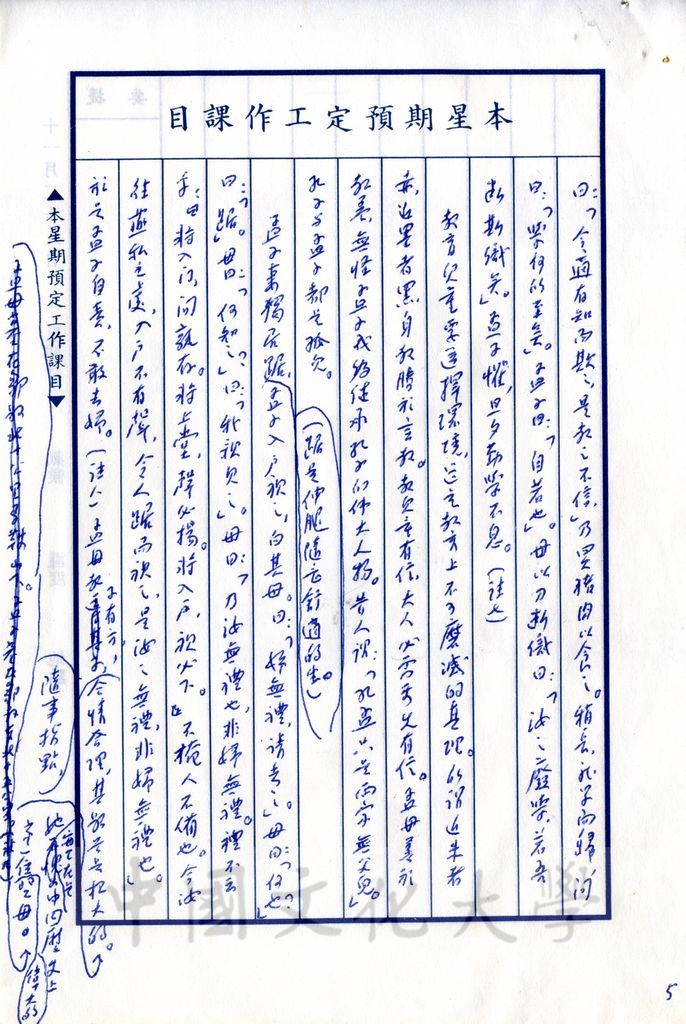 本星期預定工作課目
曰:「今適有知而欺之,是教之不信」乃買豬肉以食之。稍長,就學而歸,問
曰:「學何所至矣」。孟子曰:「自若也」。母以刀斷織曰:「汝之廢學,若吾
斷斯織矣」。孟子懼,旦夕勤學不息。(註七)
教育兒童要選擇環境,這是教育上不可磨滅的真理。所謂近朱者
赤,近墨者黑,身教勝於言教。教兒童有信,大人必需要先有信。孟母善於
教養,無怪孟子成為徒承孔子的偉大人物。昔人謂:「孔孟只是兩字無父兒」。
孔子與孟子都是孤兒。
(踞是伸腿隨意舒適的坐。)
孟子妻獨居踞,孟子入戶視之,白其母。曰:「婦無禮,請去之」。母曰:「何也」?
曰:「踞」。母曰:「何知之」?曰:「我親見之」。母曰:「乃汝無禮也,非婦無禮。禮不云
乎:『將入門,問孰存。將上堂,聲必揚。將入戶,視必下。』不掩人不備也。今汝
往燕私之處,入戶不有聲,令人踞而視之,是汝之無禮,非婦無禮也」。
於是孟子自責,不敢去婦。(註八)孟母教子有方,合情合理,其教益是極大的。
隨事指點,
她在中國歷史上
偉大的
▲本星期預定工作課目▼
中國文化大學
5